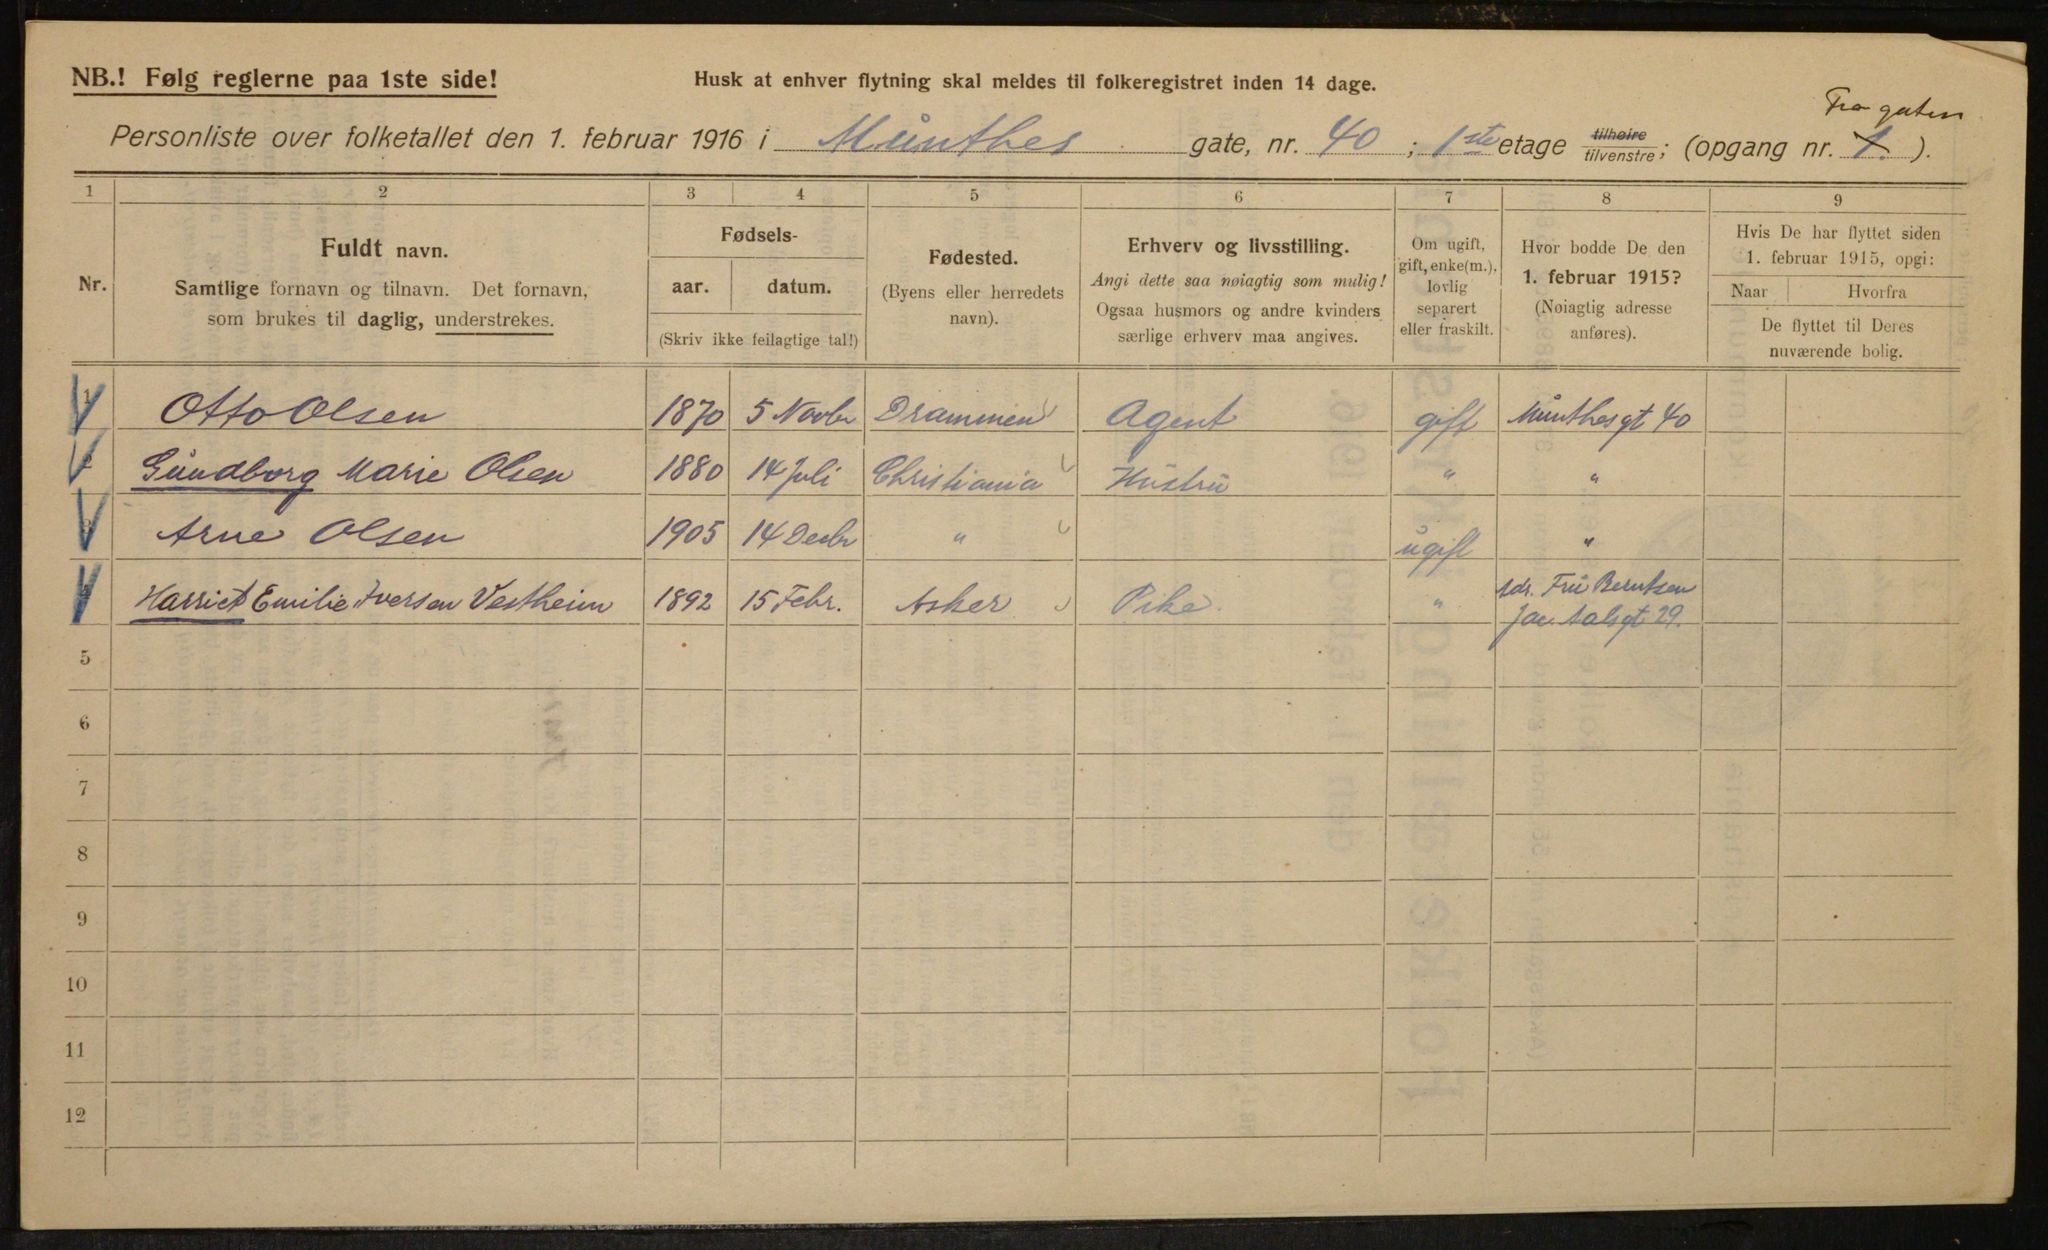 NB.! Følg reglerne paa 1ste side!
Husk at enhver flytning skal meldes til folkeregistret inden 14 dage.
Fra gaten
Personliste over folketallet den 1. februar 1916 i Munthes gate, nr. 40 ; 1ste etage tilhøire tilvenstre; (opgang nr. 1. ).
1 2 3 4 5 6 7 8 9
Nr.
Fuldt navn.
Samtlige fornavn og tilnavn. Det fornavn,
som brukes til daglig, understrekes.
Fødsels-
aar. datum.
(Skriv ikke feilagtige tal!)
Fødested.
(Byens eller herredets
navn).
Erhverv og livsstilling.
Angi dette saa nøiagtig som mulig!
Ogsaa husmors og andre kvinders
særlige erhverv maa angives.
Om ugift,
gift, enke(m.),
lovlig
separert
eller fraskilt.
Hvor bodde De den
1. februar 1915?
(Nøiagtig adresse
anføres).
Hvis De har flyttet siden
1. februar 1915, opgi:
Naar Hvorfra
De flyttet til Deres
nuværende bolig.
1 Otto Olsen 1870 5 Novbr Drammen Agent gift Munthesgt 40
2 Gundborg Marie Olsen 1880 14 Juli Christiania Hustru " "
3 Arne Olsen 1905 14 Decbr " ugift "
4 Harriet Emilie Iversen Vestheim 1892 15 Febr. Asker Pike. " Adr. Fru Berntsen
Jac. Aalsgt 29.
5
6
7
8
9
10
11
12